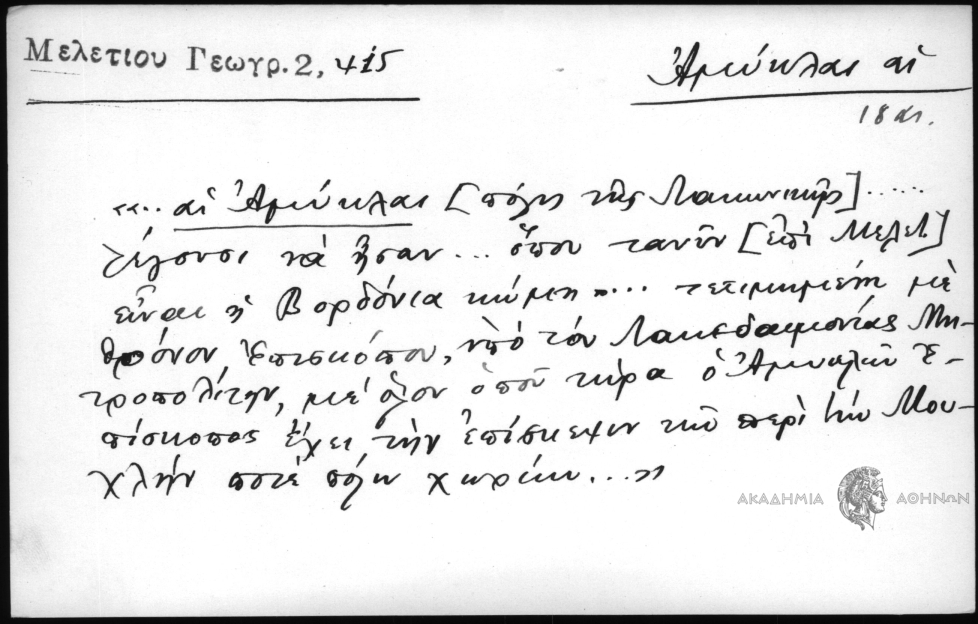 Μελετίου Γεωγρ. 2, 415
Ἀμύκλαι αἱ
18 αι.
«... αἱ Ἀμύκλαι [πόλις τῆς Λακωνικῆς] .....
λέγουσι νὰ ἦσαν ... ὅπου τανῦν [ἐπὶ Μελετ.]
εἶναι ἡ Βορδόνια κώμη» ... τετιμημένη μὲ
θρόνον Ἐπισκόπου, ὑπὸ τὸν Λακεδαιμονίας Μη-
τροπολίτην, μὲ ὅλον ὁποῦ τώρα ὁ Ἀμυκλῶν Ἐ-
πίσκοπος ἔχει τὴν ἐπίσκεψιν τῶν περὶ τὴν Μου-
χλὴν ποτὲ πόλιν χωρίων...»
ΑΚΑΔΗΜΙΑ ΑΘΗΝΩΝ